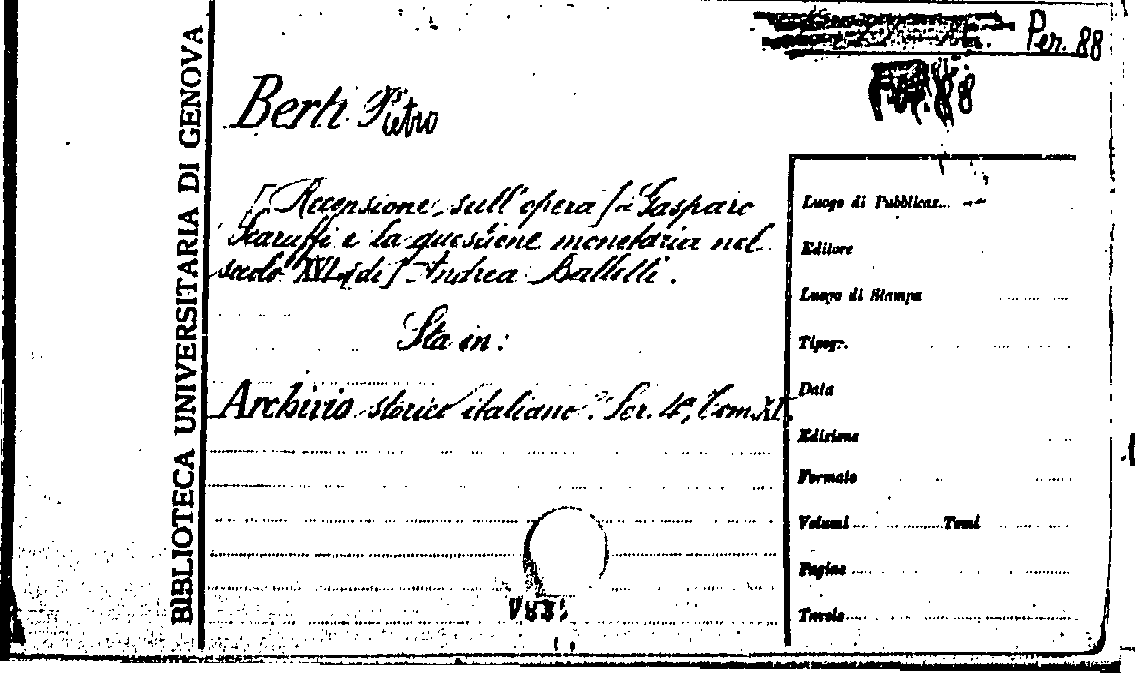 Per. 88
BIBLIOTECA UNIVERSITARIA DI GENOVA
Berti Pietro
[Recensione sull'opera] - Gasparo
Scaruffi e la questione monetaria nel
secolo XVI [di] Andrea Balletti.
Sta in:
Archivio storico italiano. Ser. 4ª, Tom. XI.
Luogo di Pubblicaz.
Editore
Luogo di Stampa
Tipogr.
Data
Edizione
Formato
Volumi Tomi
Pagine
Tavole